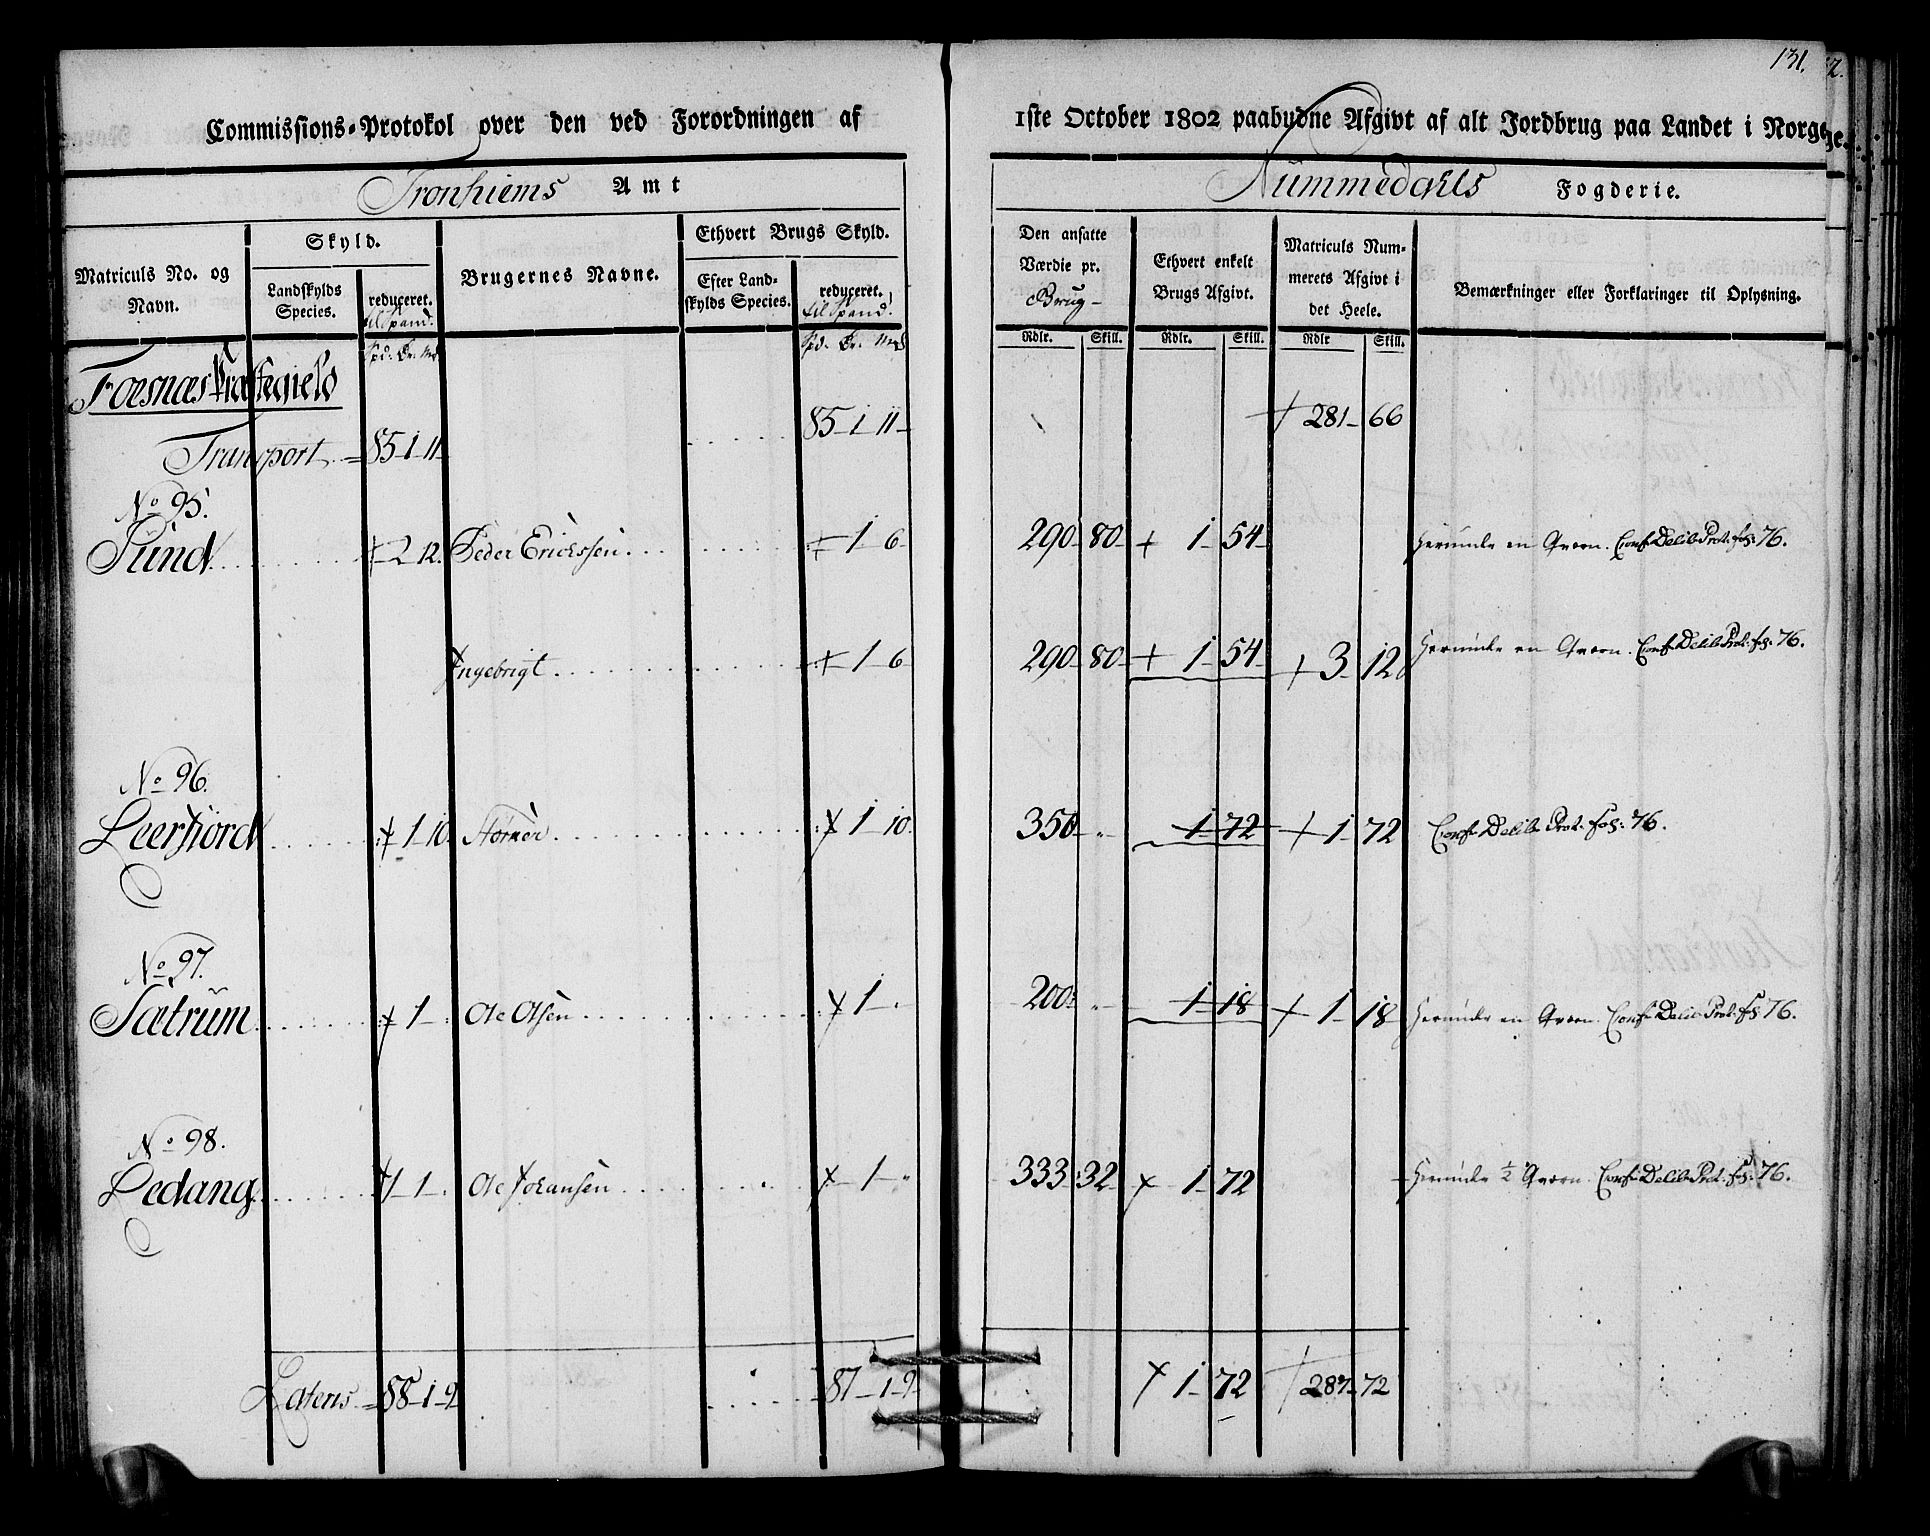 131.
Commissions-Protokol over den ved Forordningen af 1ste October 1802 paabudne Afgivt af alt Jordbrug paa Landet i Norge.
Tronhiems Amt
Nummedahls Fogderie.
Matriculs No. og Navn.
Skyld.
Landskylds Species.
reduceret.
til Spand.
Brugernes Navne.
Ethvert Brugs Skyld.
Efter Landskylds Species.
reduceret.
til Spand.
Den ansatte Værdie pr.
Brug
Ethvert enkelt Brugs Afgivt.
Matriculs Nummerets Afgivt i det Heele.
Bemærkninger eller Forklaringer til Oplysning.
Spd. Ør. Mrk
Spd. Ør. Mrk
Rdlr. Skill. Rdlr. Skill. Rdlr Skill.
Foesnæs Præstegield
Transport 85-1-11 85-1-11 281-66
No 95.
Sund 2 12. Peder Erichssen 1-6 290-80 1-54 Herunder en Qværn. Conf: Delib: Prot: fol: 76.
Ingebrigt 1-6 290-80 1-54 3-12 Herunder en Qværn. Conf: Delib: Prot: fol: 76.
No 96.
Leerfiord 1-10. Størker 1-10. 350 1-72 1-72 Conf: Delib: Prot: fol: 76.
No 97.
Sætrum 1 Ole Olsen 1 200 1-18 1-18 Herunder en Qværn. Conf: Delib: Prot: fol: 76.
No 98.
Ledang 1-1 Ole Johansen 1 333-32 1-72 Herunder ½ Qværn. Conf: Delib: Prot: fol: 76.
Lateris 88-1-9 87-1-9 1-72 287-72